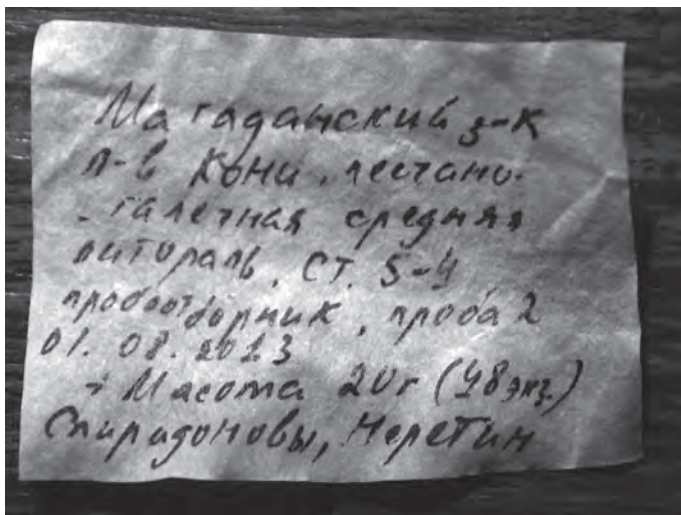 Магаданский з-к
п-в Кони, песчано-
-галечная средняя
литораль, ст. 5-4
пробоотборник, проба 2
01. 08. 2013
+ Macoma 20г (48экз.)
Спиридоновы, Неретин